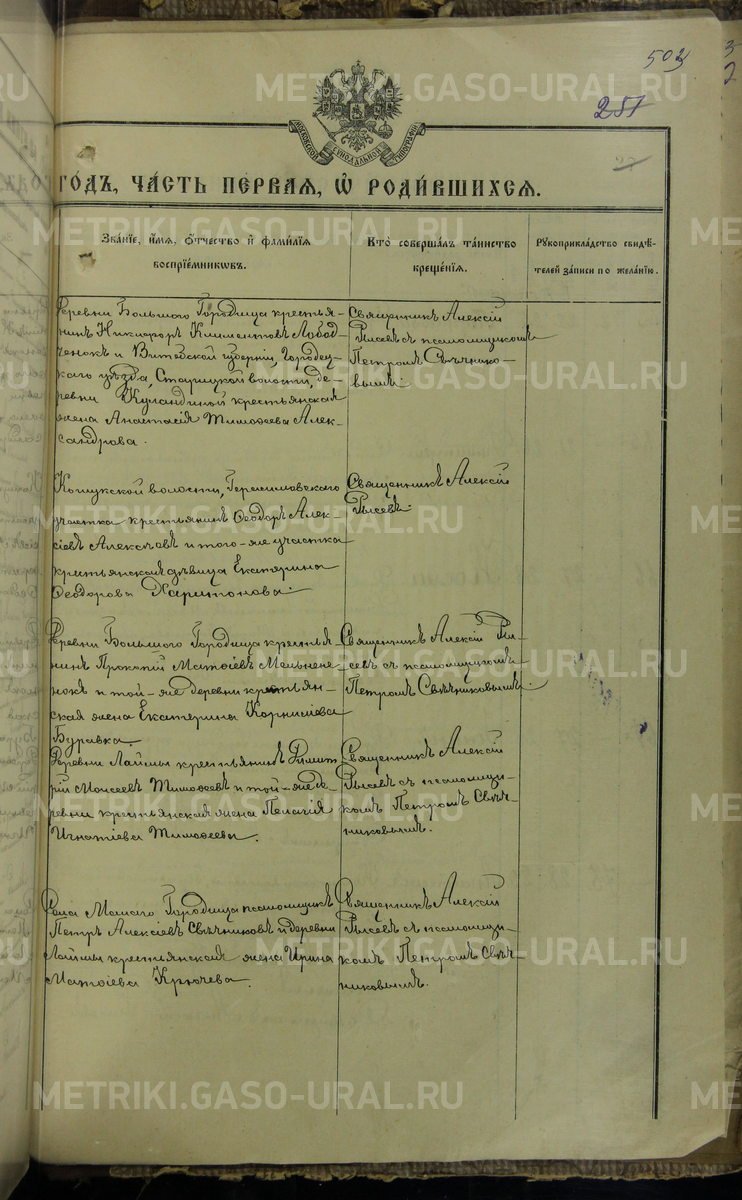 503
251
27
МОСКОВСКОЙ СѴНОДАЛЬНОЙ ТИПОГРАФІИ
ГО́ДЪ, ЧА́СТЬ ПЕ́РВАЯ, Ѽ РОДИ́ВШИХСЯ.
Зва́ніе, и́мя, ѻ́тчество и҆ фами́лія
воспріе́мниковъ.
Кто̀ соверша́лъ та́инство
креще́нія.
Рукоприкла́дство свидѣ́-
телей за́писи по жела́нію.
Деревни Большого Городища крестья-
нинъ Никифоръ Климентовъ Лобод-
ченокъ и Витебской губерніи, Городец-
каго уѣзда, Старицкой волости, де-
ревни Куландиной крестьянская
жена Анастасія Тимофеева Алек-
сандрова.
Священникъ Алексій
Рысевъ съ псаломщикомъ
Петромъ Свѣчнико-
вымъ.
Кошукской волости, Герасимовскаго
участка крестьянинъ Ѳеодоръ Алек-
сіевъ Алексѣевъ и того-же участка
крестьянская дѣвица Екатерина
Ѳеодорова Харитонова.
Священникъ Алексій
Рысевъ.
Деревни Большого Городища крестья-
нинъ Прокопій Матѳіевъ Мельнече-
нокъ и той-же деревни крестьян-
ская жена Екатерина Корниліева
Буравка.
Священникъ Алексій Ры-
севъ съ псаломщикомъ
Петромъ Свѣчниковымъ.
Деревни Лаймы крестьянинъ Димит-
рій Моисеевъ Тимоѳеевъ и той-же де-
ревни крестьянская жена Пелагія
Игнатіева Тимоѳеева.
Священникъ Алексій
Рысевъ съ псаломщи-
комъ Петромъ Свѣч-
никовымъ.
Села Малаго Городища псаломщикъ
Петръ Алексіевъ Свѣчниковъ и деревни
Лаймы крестьянская жена Ирина
Матѳіева Крючева.
Священникъ Алексій
Рысевъ съ псаломщи-
комъ Петромъ Свѣч-
никовымъ.
METRIKI.GASO-URAL.RU